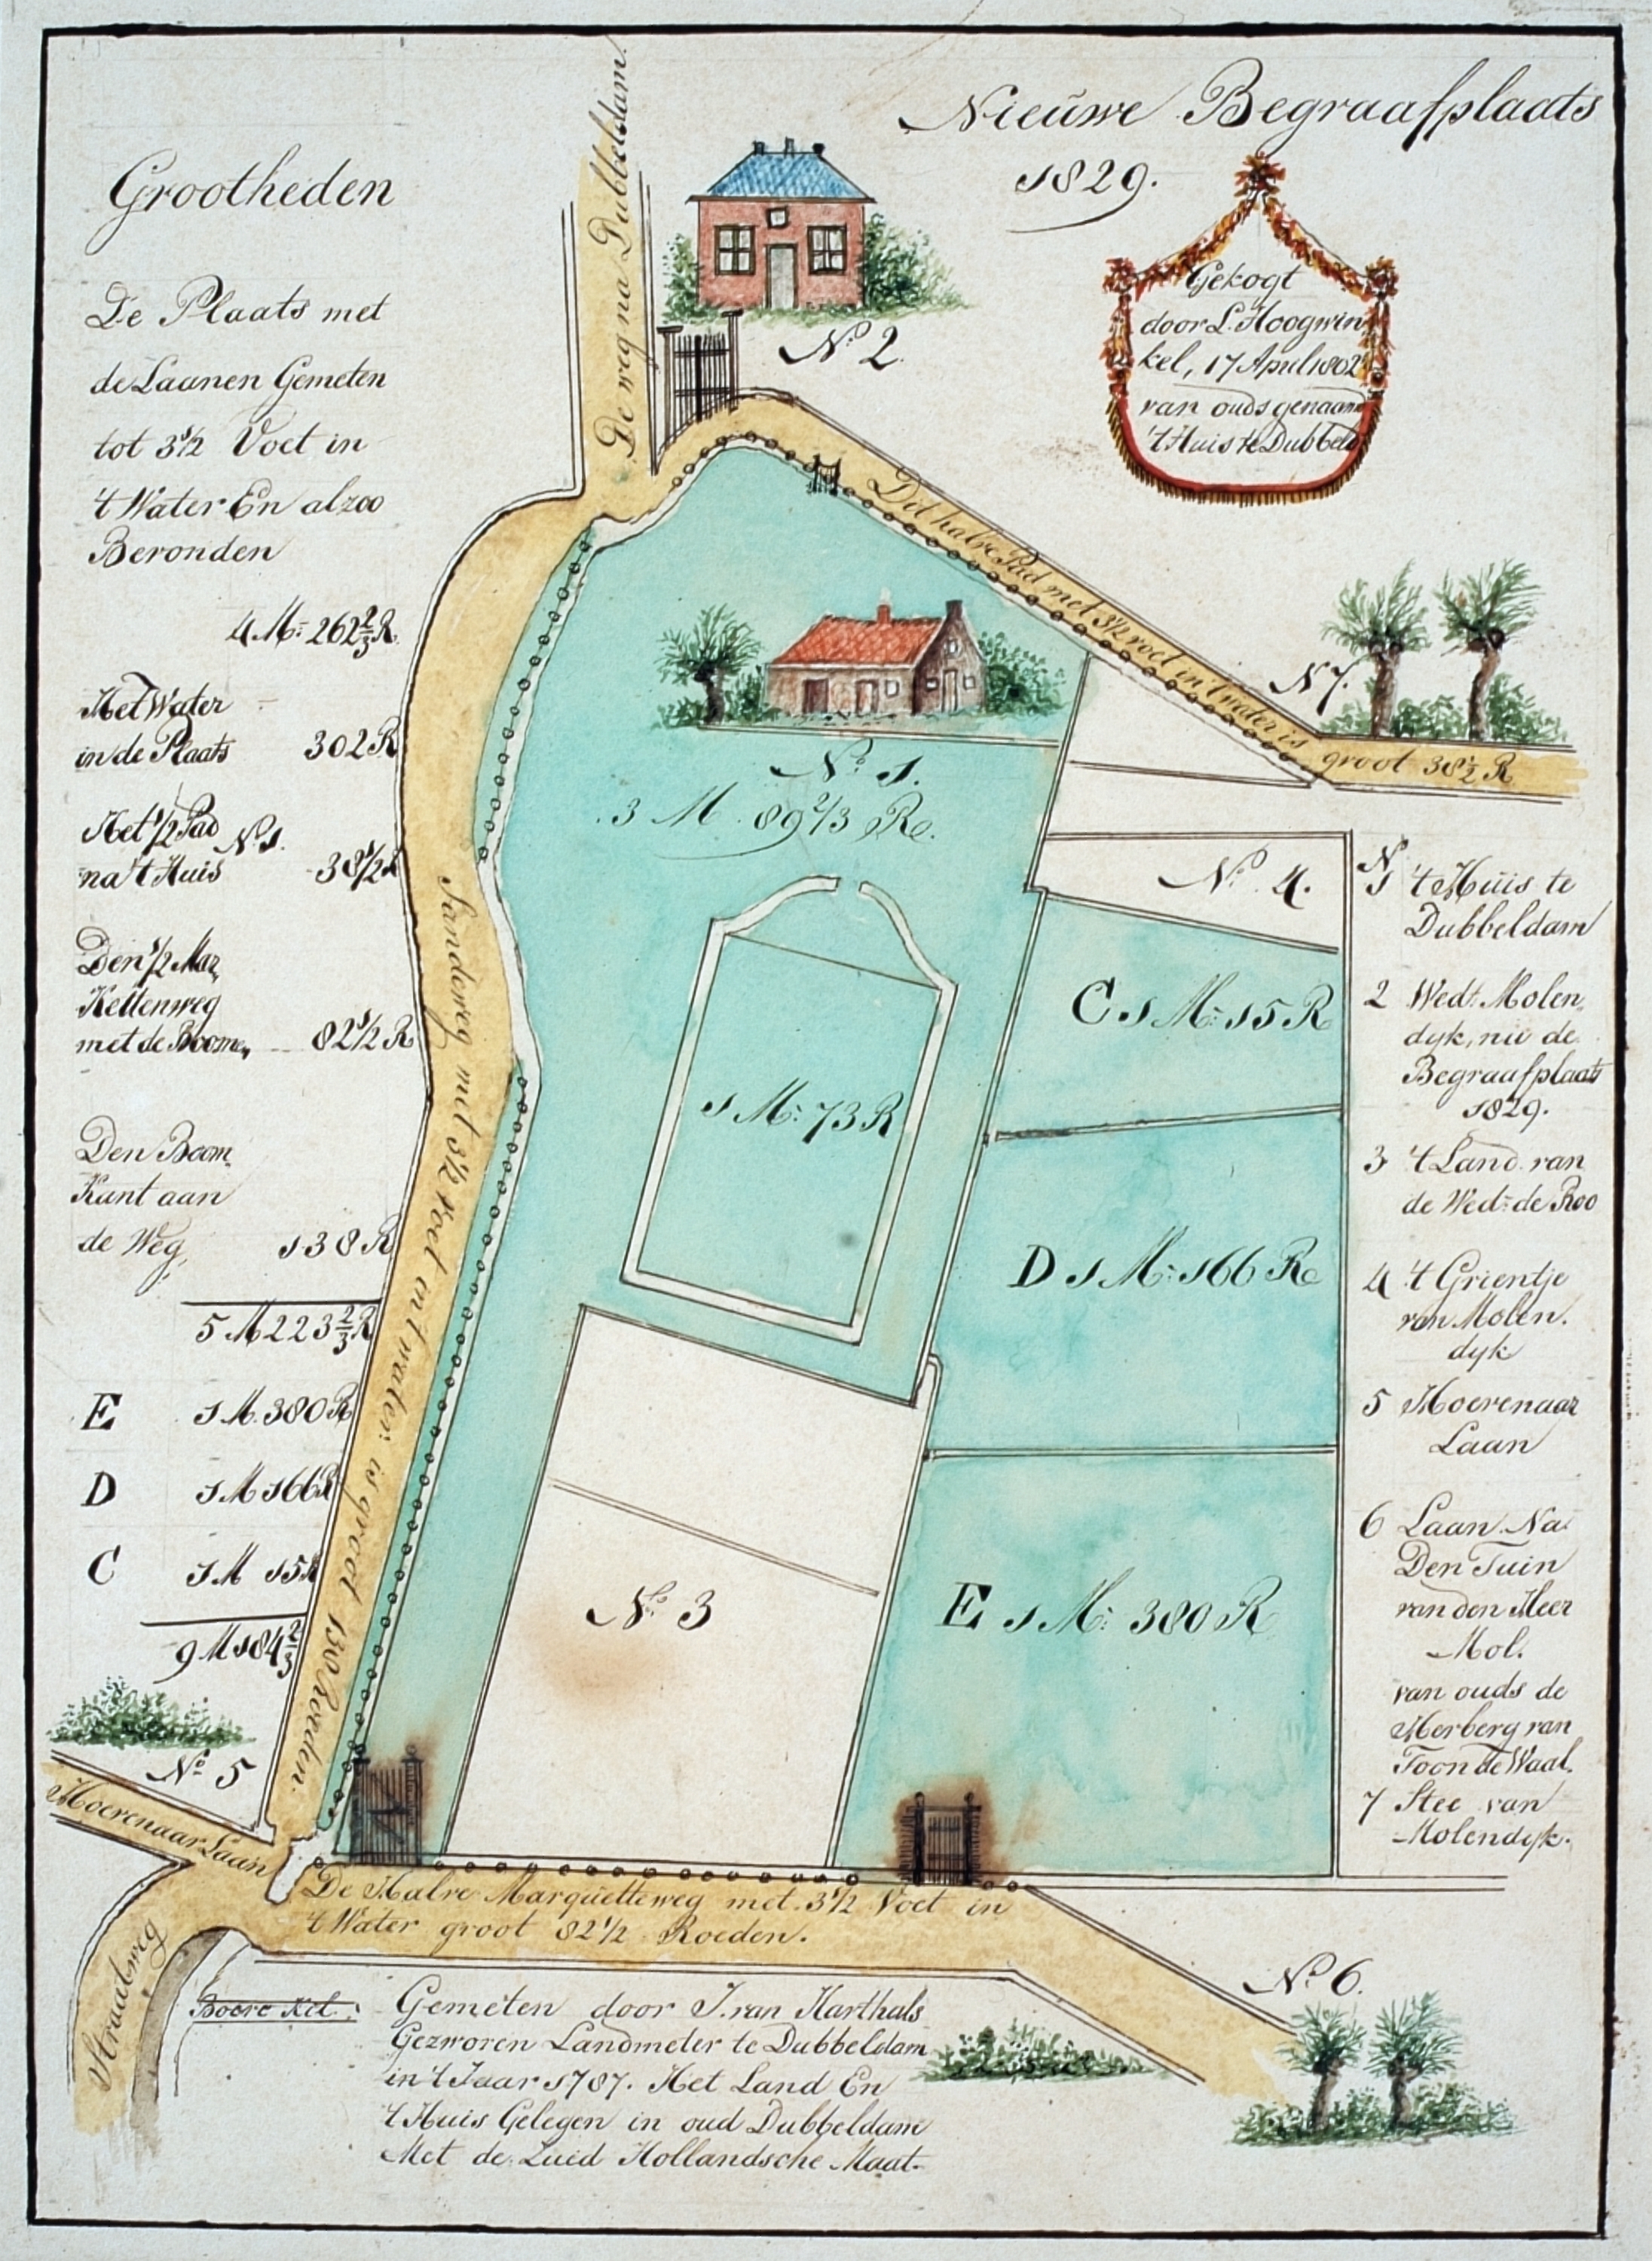 Nieuwe Begraafplaats
1829.
Gekogt
door L. Hoogwin
kel, 17 April 1802
van ouds genaam
't Huis te Dubbeld
Grootheden
De Plaats met
de Laanen Gemeten
tot 3 1/2 Voet in
't Water En alzoo
Bevonden
4 M: 262 2/3 R.
Het Water
in de Plaats 302 R
Het 1/2 Pad
No 1.
na 't Huis 38 1/2 R
Den 1/2 Mar
Kettenweg
met de Boomen 82 1/2 R
Den Boom
Kant aan
de Weg, 138 R
5 M 223 2/3 R
E 1 M. 380 R
D 1 M 166 R
C 1 M 15 R
9 M 184 2/3
De weg na Dubbeldam.
No 2.
Dit halve Pad met 3 1/2 voet in 't water is groot 38 1/2 R
N 7.
No 1.
3 M. 89 2/3 R.
No 4.
C 1 M: 15 R
1 M: 73 R
D 1 M: 166 R
No 3
E 1 M: 380 R
Zandeweg met 3 1/2 Voet in 't water is groot 138 Roeden.
No 5
Moerenaar Laan
Straatweg
De Halve Marquetteweg met 3 1/2 Voet in
't Water groot 82 1/2 Roeden.
No 6.
Boere Kil:
Gemeten door J. van Harthals
Gezworen Landmeter te Dubbeldam
in 't Jaar 1787. Het Land En
't Huis Gelegen in oud Dubbeldam
Met de Zuid Hollandsche Maat
N
1 't Huis te
Dubbeldam
2 Wed: Molen
dyk, nu de
Begraafplaats
1829.
3 't Land van
de Wed: de Roo
4 't Grientje
van Molen.
dyk
5 Moerenaar
Laan
6 Laan Na
Den Tuin
van den Heer
Mol.
van ouds de
Herberg van
Toon de Waal.
7 Stee van
Molendyk.